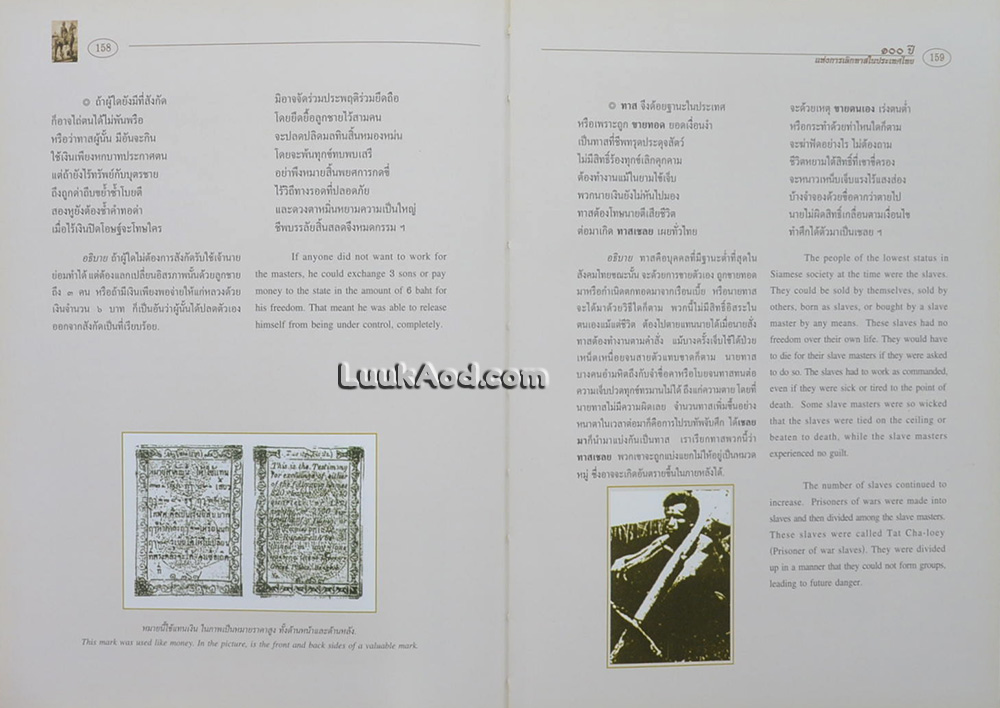 158
❂ ถ้าผู้ใดยังมีที่สังกัด
ก็อาจไถ่ตนได้ไม่พันพรือ
หรือว่าทาสผู้นั้น มีอันจะกิน
ใช้เงินเพียงหกบาทประกาศตน
แต่ถ้ายังไร้ทรัพย์กับบุตรชาย
ถึงถูกด่าถีบขย้ำซ้ำโบยตี
สองหูยังต้องช้ำคำทอด่า
เมื่อไร้เงินปิดโอษฐ์จะโทษใคร
มิอาจจัดร่วมประพฤติร่วมยึดถือ
โดยยึดยื้อลูกชายไว้สามคน
จะปลดปลิดมลทินสิ้นหมองหม่น
โดยจะพ้นทุกข์ทบพบเสรี
อย่าพึงหมายสิ้นพยศการกดขี่
ไร้วิถีทางรอดที่ปลอดภัย
และดวงตาหมิ่นหยามความเป็นใหญ่
ชีพบรรลัยสิ้นสลดจึงหมดกรรม ฯ
อธิบาย ถ้าผู้ใดไม่ต้องการสังกัดรับใช้เจ้านาย
ย่อมทำได้ แต่ต้องแลกเปลี่ยนอิสรภาพนั้นด้วยลูกชาย
ถึง ๓ คน หรือถ้ามีเงินเพียงพอจ่ายให้แก่หลวงด้วย
เงินจำนวน ๖ บาท ก็เป็นอันว่าผู้นั้นได้ปลดตัวเอง
ออกจากสังกัดเป็นที่เรียบร้อย.
If anyone did not want to work for
the masters, he could exchange 3 sons or pay
money to the state in the amount of 6 baht for
his freedom. That meant he was able to release
himself from being under control, completely.
LuukAod.com
This is the Testimony
หมายนี้ใช้แทนเงิน ในภาพเป็นหมายราคาสูง ทั้งด้านหน้าและด้านหลัง.
This mark was used like money. In the picture, is the front and back sides of a valuable mark.
๑๐๐ ปี
แห่งการเลิกทาสในประเทศไทย
159
❂ ทาส จึงด้อยฐานะในประเทศ
หรือเพราะถูก ขายทอด ยอดเงื่อนงำ
เป็นทาสที่ชีพทรุดประดุจสัตว์
ไม่มีสิทธิ์ร้องทุกข์เลิกคุกคาม
ต้องทำงานแม้ในยามใช้เจ็บ
พวกนายเงินยังไม่หันไปมอง
ทาสต้องโทษนายตีเสียชีวิต
ต่อมาเกิด ทาสเชลย เผยทั่วไทย
จะด้วยเหตุ ขายตนเอง เร่งตนต่ำ
หรือกระทำด้วยท่าไหนใดก็ตาม
จะฆ่าฟัดอย่างไร ไม่ต้องถาม
ชีวิตหยามใต้สิทธิ์ที่เขาชี่ครอง
จะหนาวเหน็บเจ็บแรงไร้แสงส่อง
บ้างจำจองด้วยขื่อคากว่าตายไป
นายไม่ผิดสิทธิ์เกลื่อนตามเงื่อนไข
ทำศึกได้ตัวมาเป็นเชลย ฯ
อธิบาย ทาสคือบุคคลที่มีฐานะต่ำที่สุดใน
สังคมไทยขณะนั้น จะด้วยการขายตัวเอง ถูกขายทอด
มาหรือกำเนิดตกทอดมาจากเรือนเบี้ย หรือนายทาส
จะได้มาด้วยวิธีใดก็ตาม พวกนี้ไม่มีสิทธิ์อิสระใน
ตนเองแม้แต่ชีวิต ต้องไปตายแทนนายได้เมื่อนายสั่ง
ทาสต้องทำงานตามคำสั่ง แม้บางครั้งเจ็บไข้ได้ป่วย
เหน็ดเหนื่อยจนสายตัวแทบขาดก็ตาม นายทาส
บางคนอำมหิตถึงกับจำขื่อคาหรือโบยจนทาสทนต่อ
ความเจ็บปวดทุกข์ทรมานไม่ได้ ถึงแก่ความตาย โดยที่
นายทาสไม่มีความผิดเลย จำนวนทาสเพิ่มขึ้นอย่าง
หนาตาในเวลาต่อมาก็คือการไปรบทัพจับศึก ได้เชลย
มาก็นำมาแบ่งกันเป็นทาส เราเรียกทาสพวกนี้ว่า
ทาสเชลย พวกเขาจะถูกแบ่งแยกไม่ให้อยู่เป็นหมวด
หมู่ ซึ่งอาจจะเกิดอันตรายขึ้นในภายหลังได้.
The people of the lowest status in
Siamese society at the time were the slaves.
They could be sold by themselves, sold by
others, born as slaves, or bought by a slave
master by any means. These slaves had no
freedom over their own life. They would have
to die for their slave masters if they were asked
to do so. The slaves had to work as commanded,
even if they were sick or tired to the point of
death. Some slave masters were so wicked
that the slaves were tied on the ceiling or
beaten to death, while the slave masters
experienced no guilt.
The number of slaves continued to
increase. Prisoners of wars were made into
slaves and then divided among the slave masters.
These slaves were called Tat Cha-loey
(Prisoner of war slaves). They were divided
up in a manner that they could not form groups,
leading to future danger.